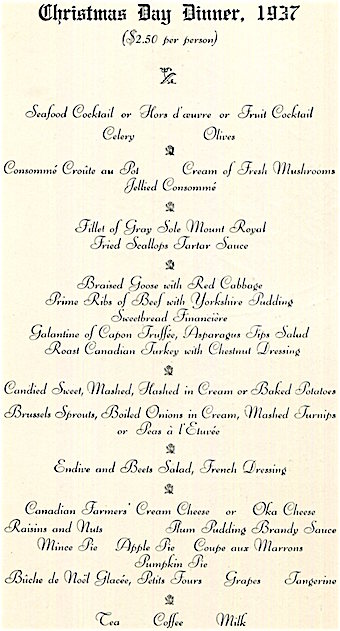 Christmas Day Dinner, 1937
($2.50 per person)
Seafood Cocktail or Hors d'œuvre or Fruit Cocktail
Celery Olives
Consommé Croûte au Pot Cream of Fresh Mushrooms
Jellied Consommé
Fillet of Gray Sole Mount Royal
Fried Scallops Tartar Sauce
Braised Goose with Red Cabbage
Prime Ribs of Beef with Yorkshire Pudding
Sweetbread Financière
Galantine of Capon Truffée, Asparagus Tips Salad
Roast Canadian Turkey with Chestnut Dressing
Candied Sweet, Mashed, Hashed in Cream or Baked Potatoes
Brussels Sprouts, Boiled Onions in Cream, Mashed Turnips
or Peas à l'Etuvée
Endive and Beets Salad, French Dressing
Canadian Farmers' Cream Cheese or Oka Cheese
Raisins and Nuts Plum Pudding Brandy Sauce
Mince Pie Apple Pie Coupe aux Marrons
Pumpkin Pie
Bûche de Noël Glacée, Petits Fours Grapes Tangerine
Tea Coffee Milk